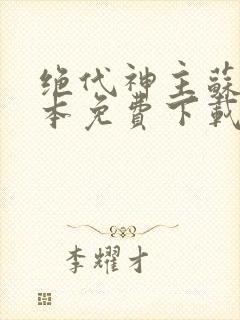 绝代神主蘇
本免費下載
李耀才